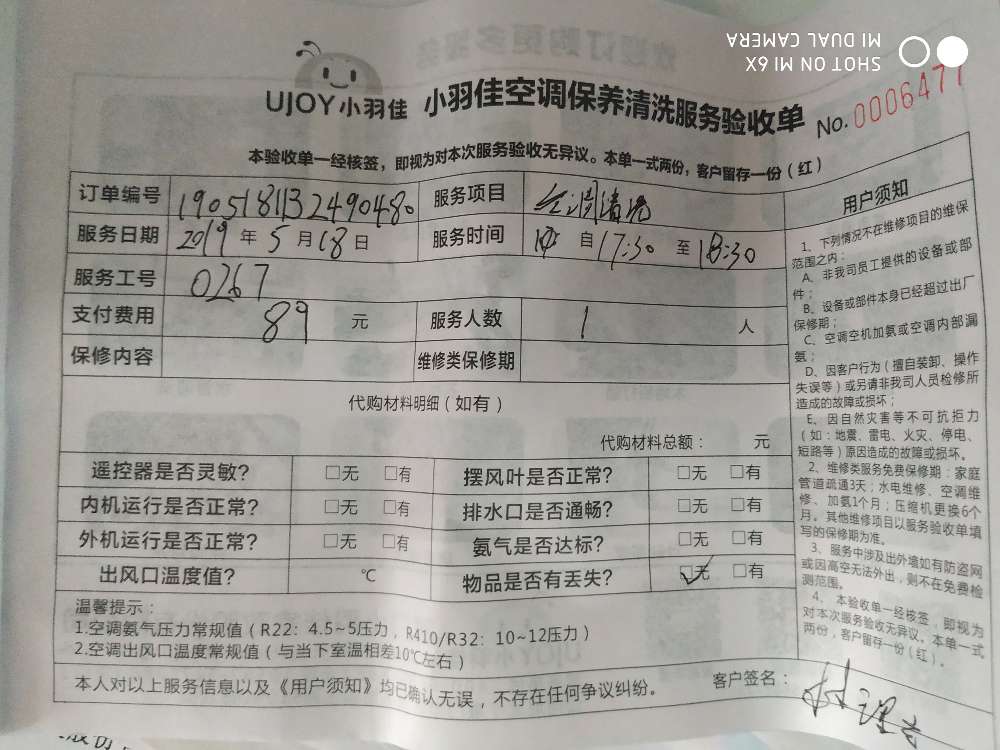 SHOT ON MI 6X
MI DUAL CAMERA
UJOY小羽佳 小羽佳空调保养清洗服务验收单 No. 0006477
本验收单一经核签，即视为对本次服务验收无异议。本单一式两份，客户留存一份（红）
订单编号 190518113249 0480 服务项目 空调清洗
服务日期 2019 年 5 月 18 日 服务时间 自 17:30 至 18:30
服务工号 0267
支付费用 89 元 服务人数 1 人
保修内容 维修类保修期
代购材料明细（如有）
代购材料总额： 元
遥控器是否灵敏? □无 □有 摆风叶是否正常? □无 □有
内机运行是否正常? □无 □有 排水口是否通畅? □无 □有
外机运行是否正常? □无 □有 氨气是否达标? □无 □有
出风口温度值? ℃ 物品是否有丢失? ☑无 □有
温馨提示：
1.空调氨气压力常规值（R22：4.5~5压力，R410/R32：10~12压力）
2.空调出风口温度常规值（与当下室温相差10℃左右）
本人对以上服务信息以及《用户须知》均已确认无误，不存在任何争议纠纷。 客户签名：
用户须知
1、下列情况不在维修项目的维保
范围之内：
A、非我司员工提供的设备或部
件；
B、设备或部件本身已经超过出厂
保修期；
C、空调空机加氨或空调内部漏
氨；
D、因客户行为（擅自装卸、操作
失误等）或另请非我司人员检修所
造成的故障或损坏；
E、因自然灾害等不可抗拒力
（如：地震、雷电、火灾、停电、
短路等）原因造成的故障或损坏。
2、维修类服务免费保修期：家庭
管道疏通3天；水电维修、空调维
修、加氨1个月；压缩机更换6个
月。其他维修项目以服务验收单填
写的保修期为准。
3、服务中涉及出外墙如有防盗网
或因高空无法外出，则不在免费检
测范围。
4、本验收单一经核签，即视为
对本次服务验收无异议。本单一式
两份，客户留存一份（红）。